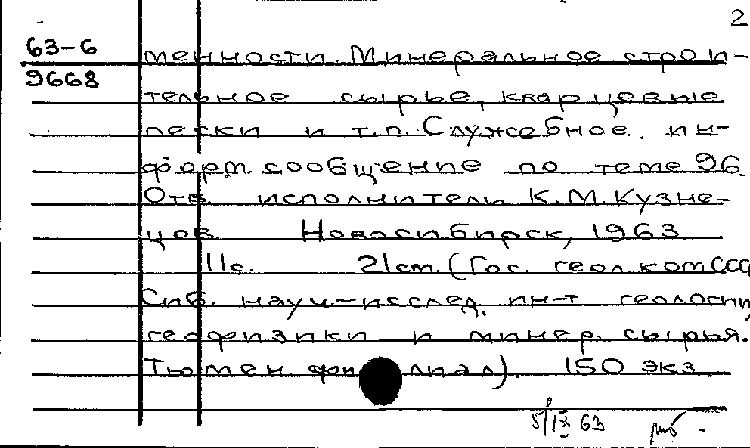 2
63-6
9668
менности. Минеральное строи-
тельное сырье, кварцевые
пески и т.п. Служебное ин-
форм. сообщение по теме 96
Отв. исполнитель К.М. Кузне-
цов. Новосибирск, 1963
11с. 21см. (Гос. геол. ком СССР
Сиб. науч-исслед. ин-т геологии,
геофизики и минер. сырья.
Тюмен. филиал). 150 экз.
5/IX 63